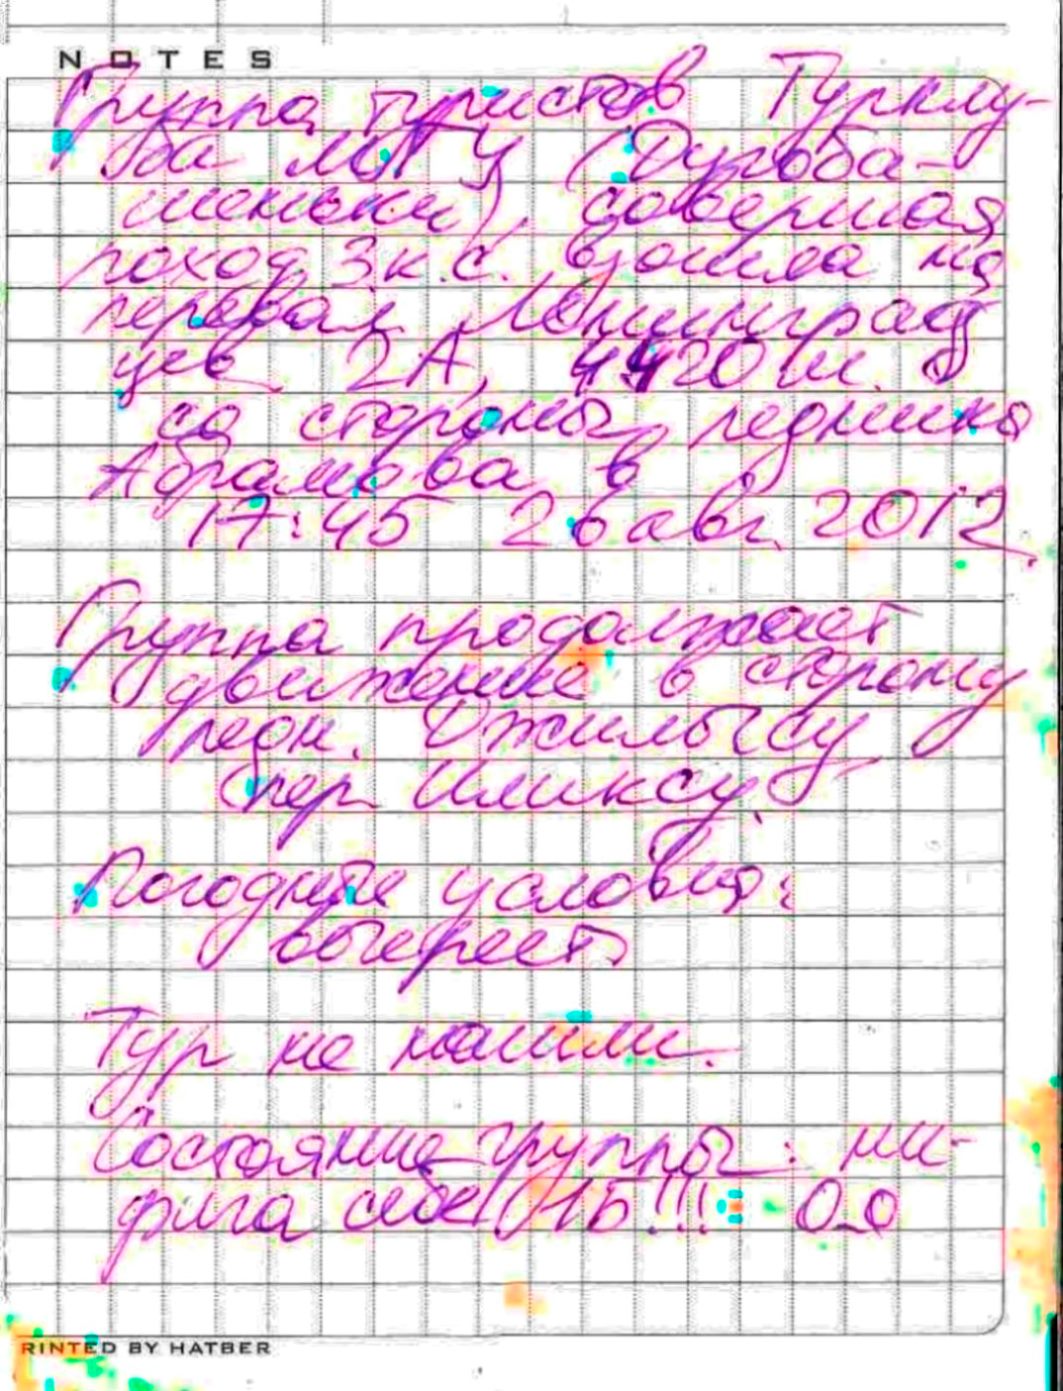 NOTES
Группа туристов Турклу-
ба МГУ (Дугоба-
шеньки), совершая
поход 3 к.с. взошла на
перевал Ленинград
цев 2А, 4420 м.
со стороны ледника
Абрамова в
17:45 26 авг. 2012
Группа продолжает
движение в сторону
ледн. Джилысу
(пер. Иликсу)
Погодные условия:
Тур не нашли.
Состояние группы: ни-
фига себе! 1Б!!! О_о
RINTED BY HATBER